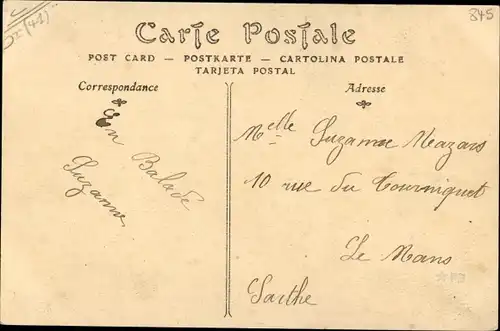 845
(41)
Carte Postale
POST CARD — POSTKARTE — CARTOLINA POSTALE
TARJETA POSTAL
Correspondance
En Balade
Suzanne
Adresse
Melle Suzanne Méazars
10 rue du Tourniquet
Le Mans
Sarthe